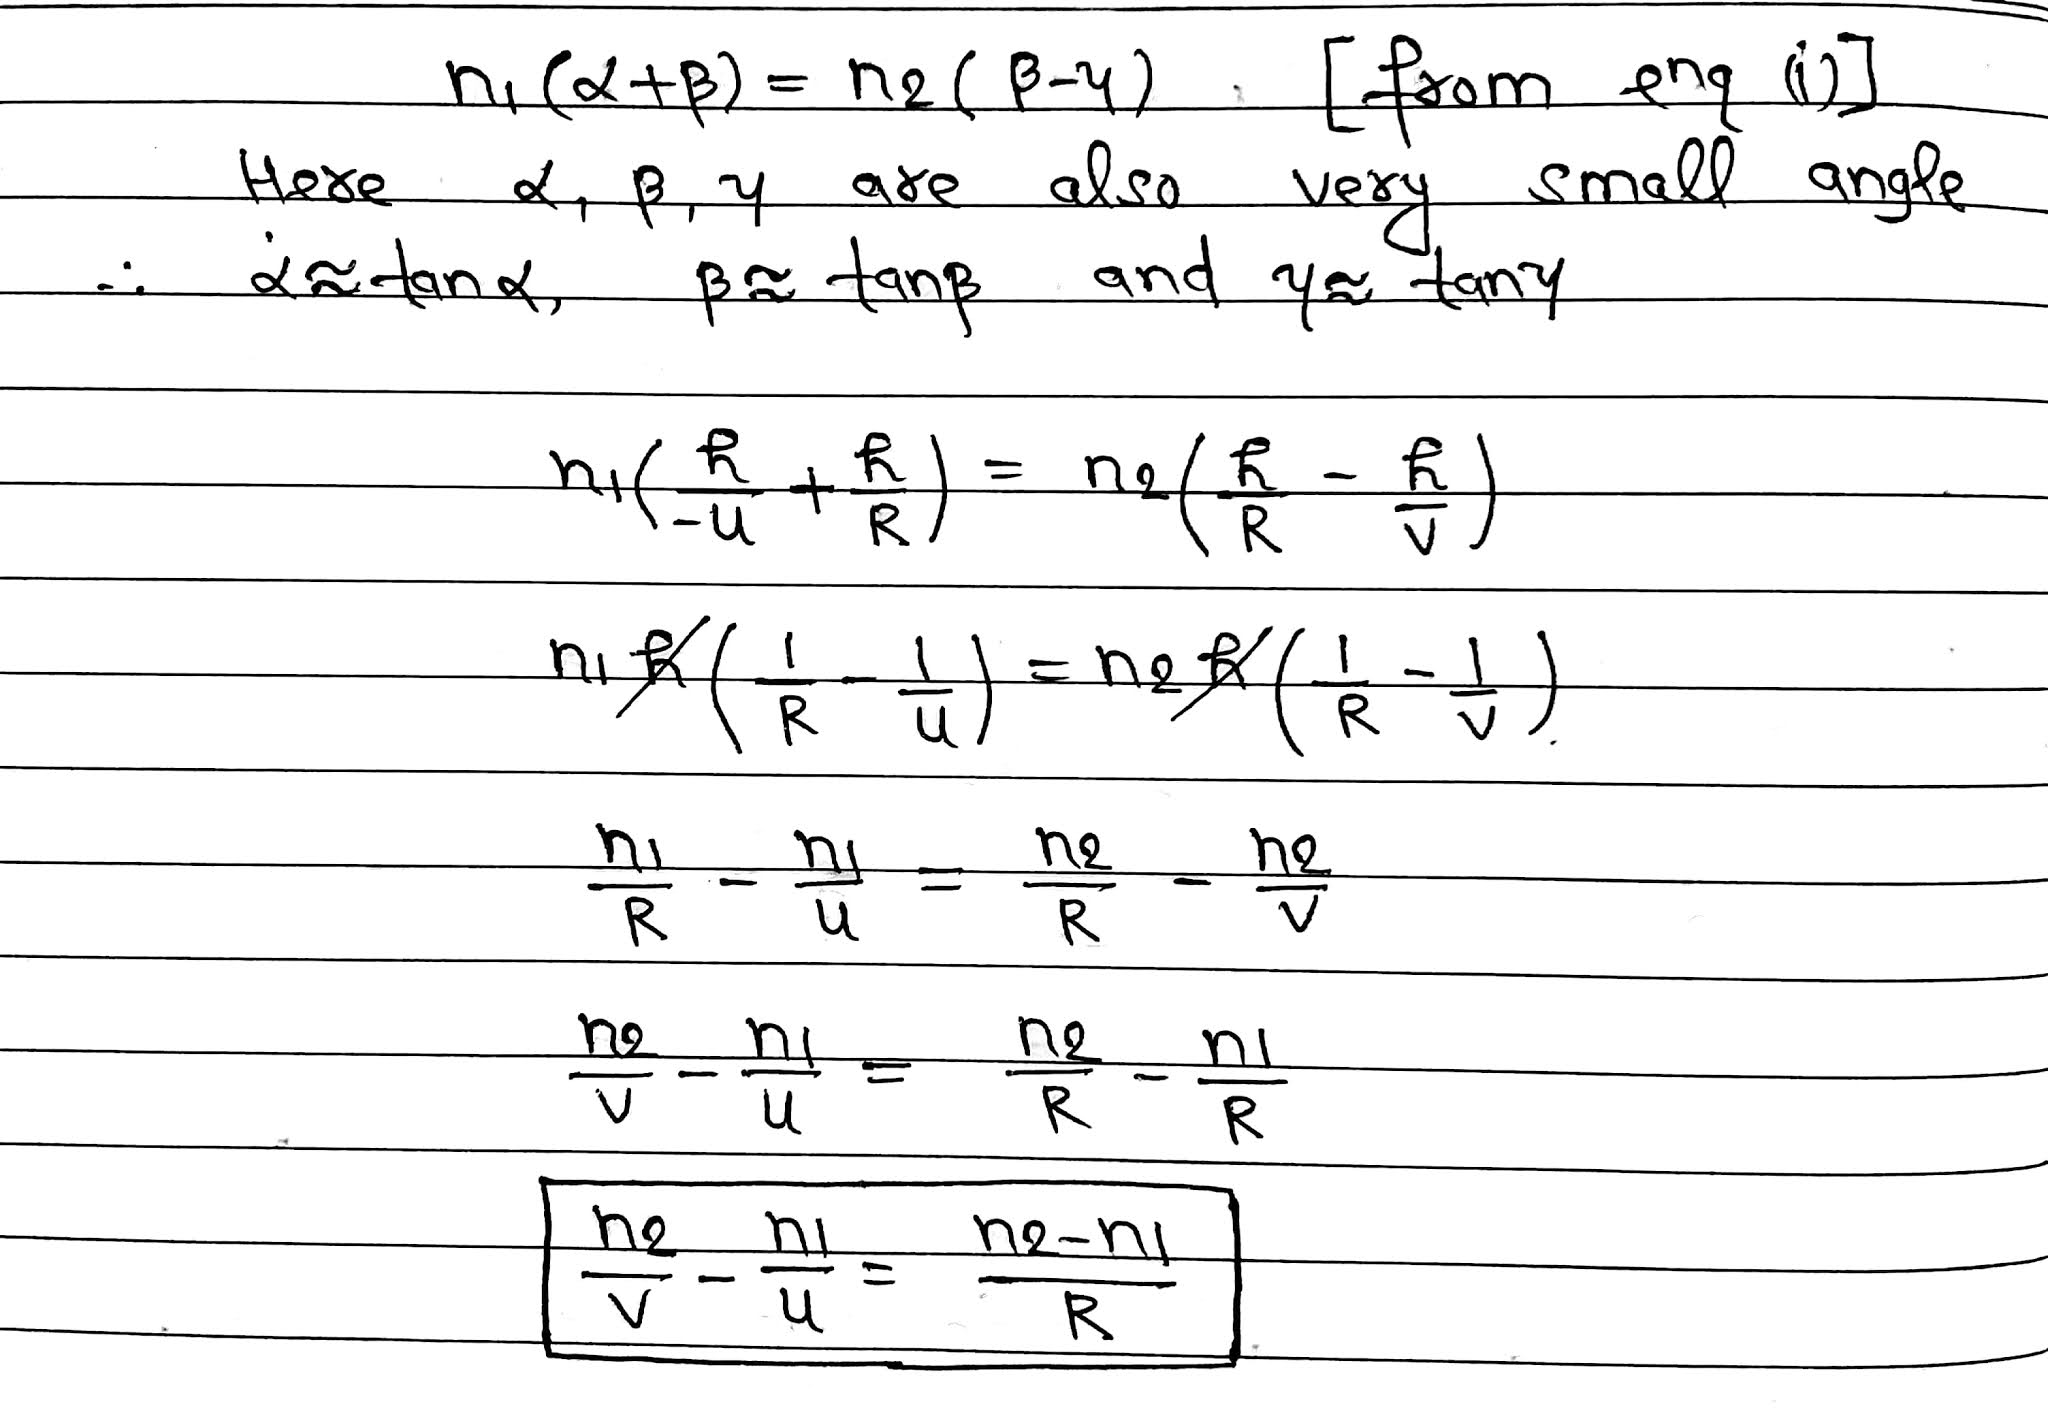 n₁(α+β) = n₂(β-γ) [from enq (i)]
Here α, β, γ are also very small angle
∴ α≈tanα, β≈ tanβ and γ≈ tanγ
n₁(h/-u + h/R) = n₂(h/R - h/v)
n₁h(1/R - 1/u) = n₂h(1/R - 1/v)
n₁/R - n₁/u = n₂/R - n₂/v
n₂/v - n₁/u = n₂/R - n₁/R
n₂/v - n₁/u = n₂-n₁/R